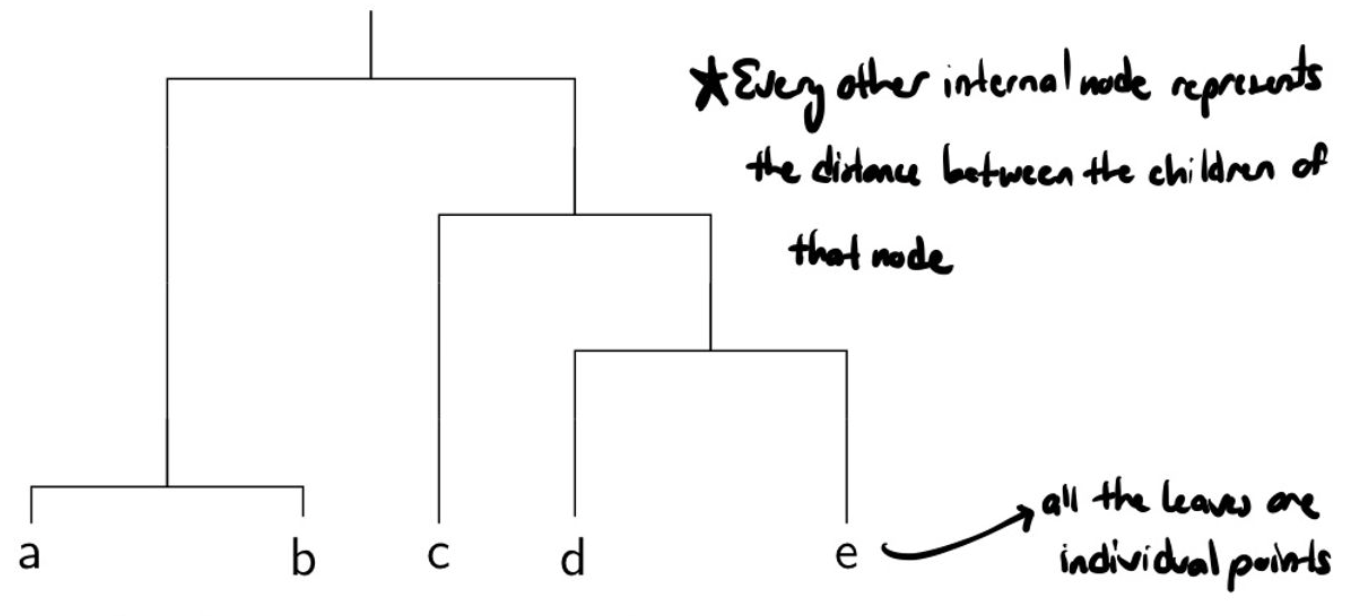 ★ Every other internal node represents
the distance between the children of
that node
all the leaves are
individual points
a b c d e